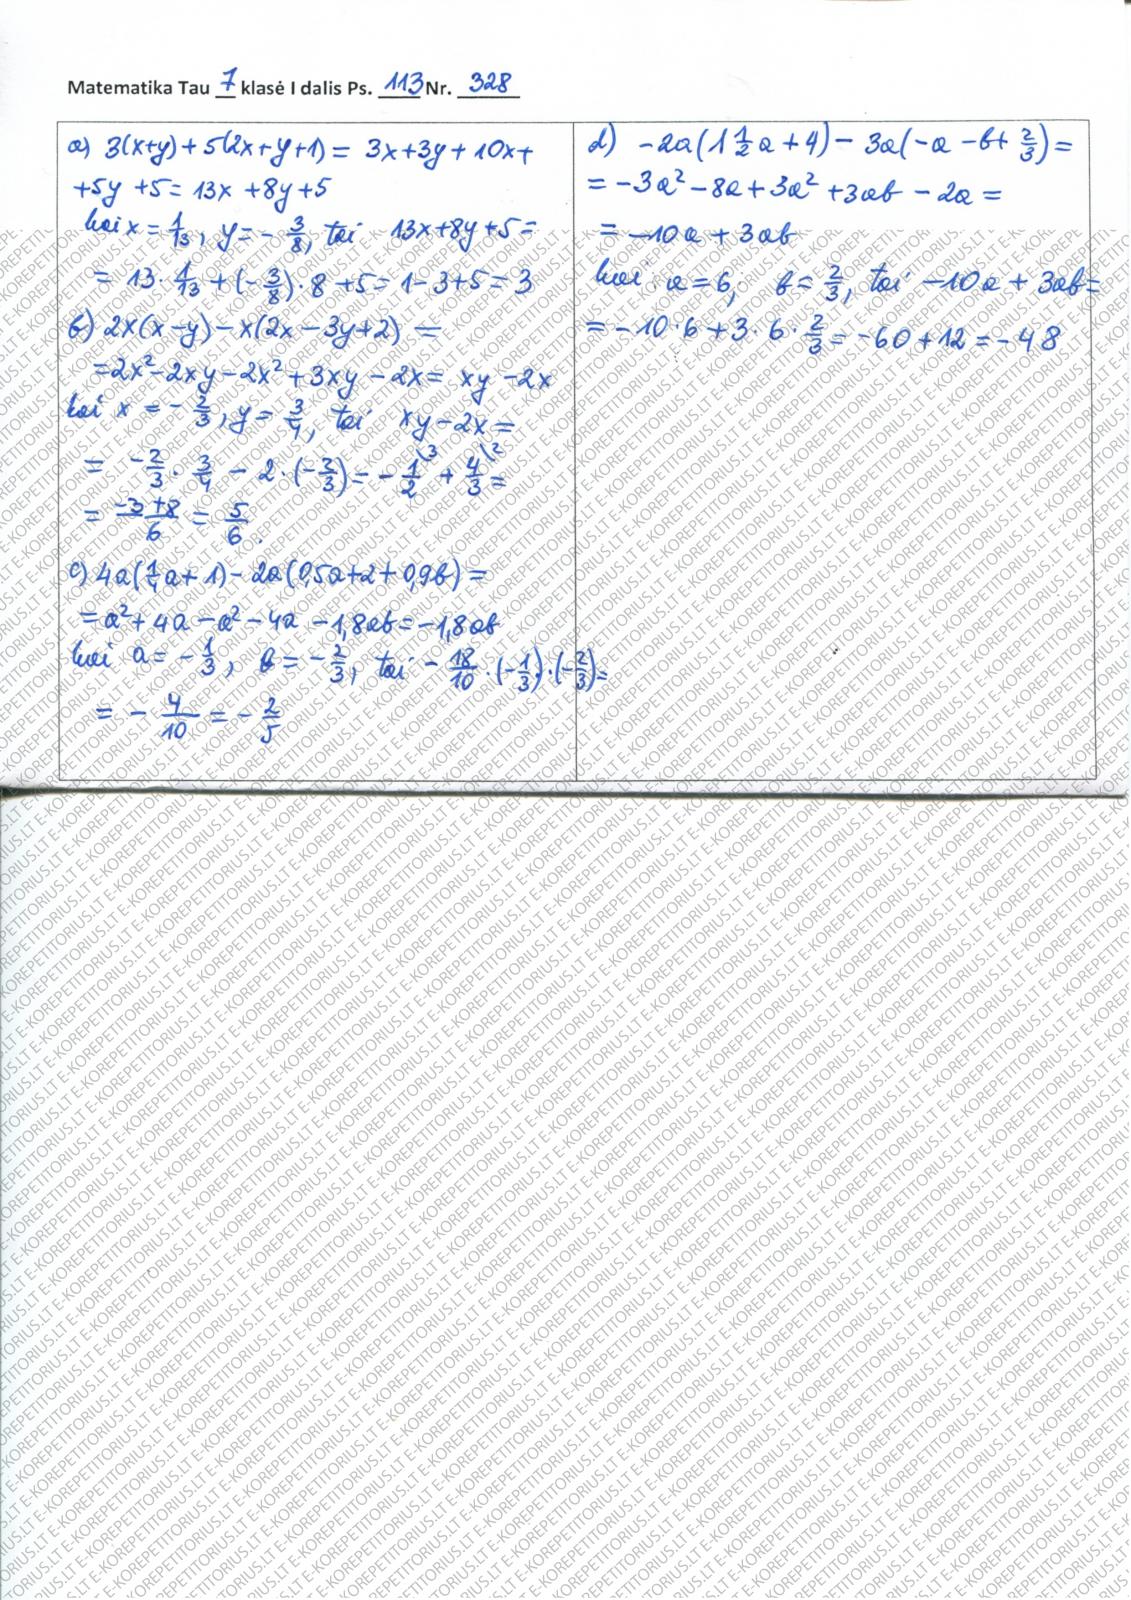 Matematika Tau 7 klasė I dalis Ps. 113 Nr. 328
a) 3(x+y)+5(2x+y+1) = 3x+3y+10x+
+5y+5=13x+8y+5
kai x = 1/13, y = -3/8, tai 13x+8y+5=
= 13·1/13+(-3/8)·8+5=1-3+5=3
b) 2x(x-y)-x(2x-3y+2) =
=2x²-2xy-2x²+3xy-2x= xy-2x
kai x = -2/3, y = 3/4, tai xy-2x=
= -2/3·3/4 - 2·(-2/3)= -1/2\3 + 4/3\2 =
= -3+8/6 = 5/6.
c) 4a(1/4a+1)-2a(0,5a+2+0,9b) =
=a²+4a-a²-4a-1,8ab=-1,8ab
kai a = -1/3, b = -2/3, tai -18/10·(-1/3)·(-2/3)=
= -4/10 = -2/5
d) -2a(1 1/2a+4)-3a(-a-b+2/3)=
=-3a²-8a+3a²+3ab-2a=
= -10a+3ab
kai a=6, b=2/3, tai -10a+3ab=
=-10·6+3·6·2/3=-60+12=-48
E-KOREPETITORIUS.LT